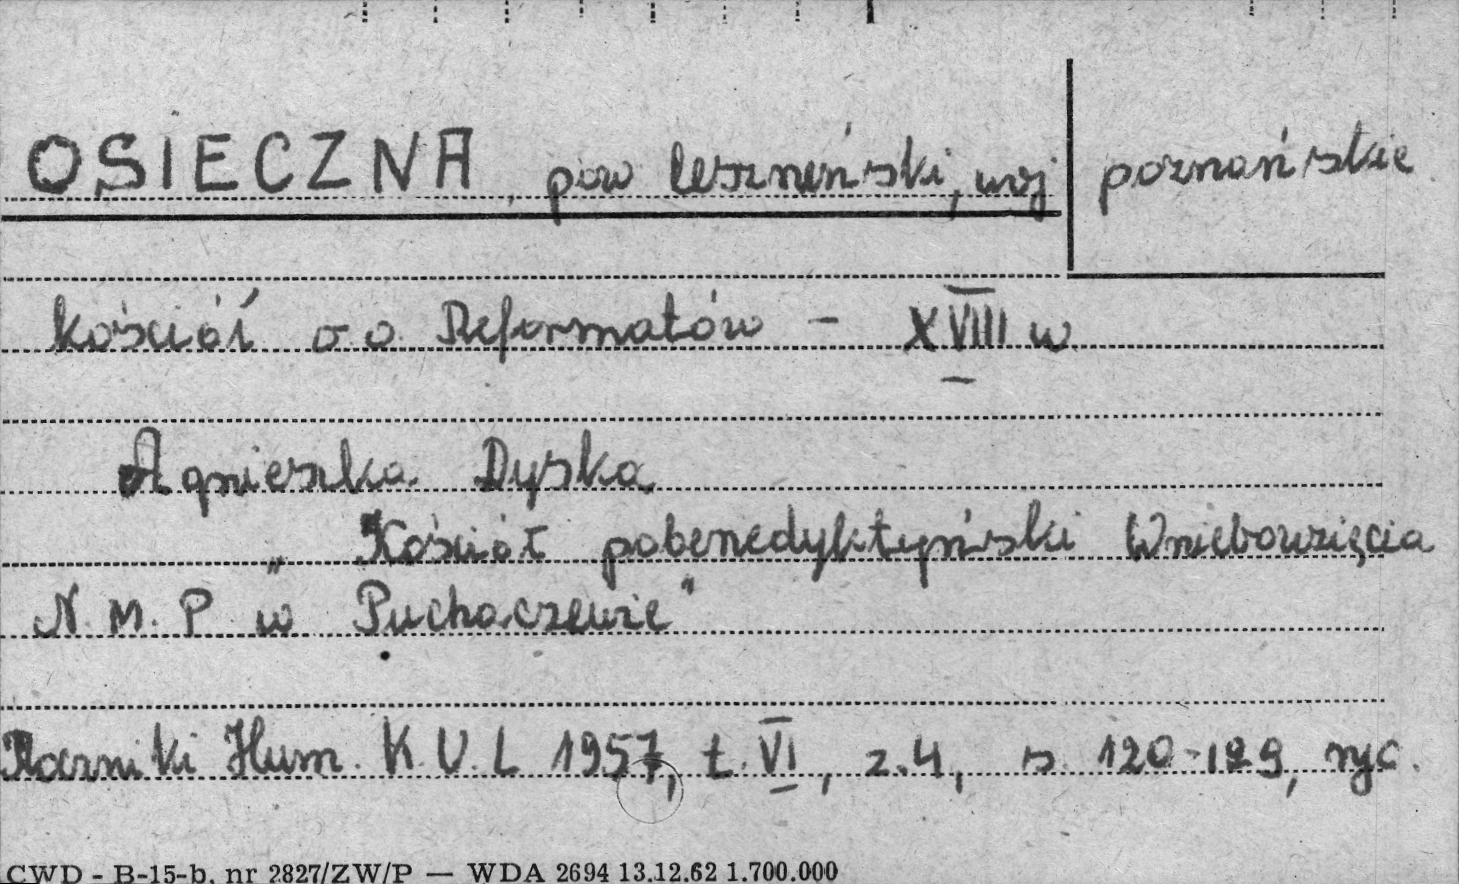 OSIECZNA, pow leszneński, woj poznańskie
kościół o.o. Reformatów – XVIII w
Agnieszka Dyska
„Kościół pobenedyktyński Wniebowzięcia
N.M.P w Puchaczewie"
Roczniki Hum. K.U.L 1957, t. VI, z.4, s. 120-129, ryc.
CWD - B-15-b, nr 2827/ZW/P — WDA 2694 13.12.62 1.700.000